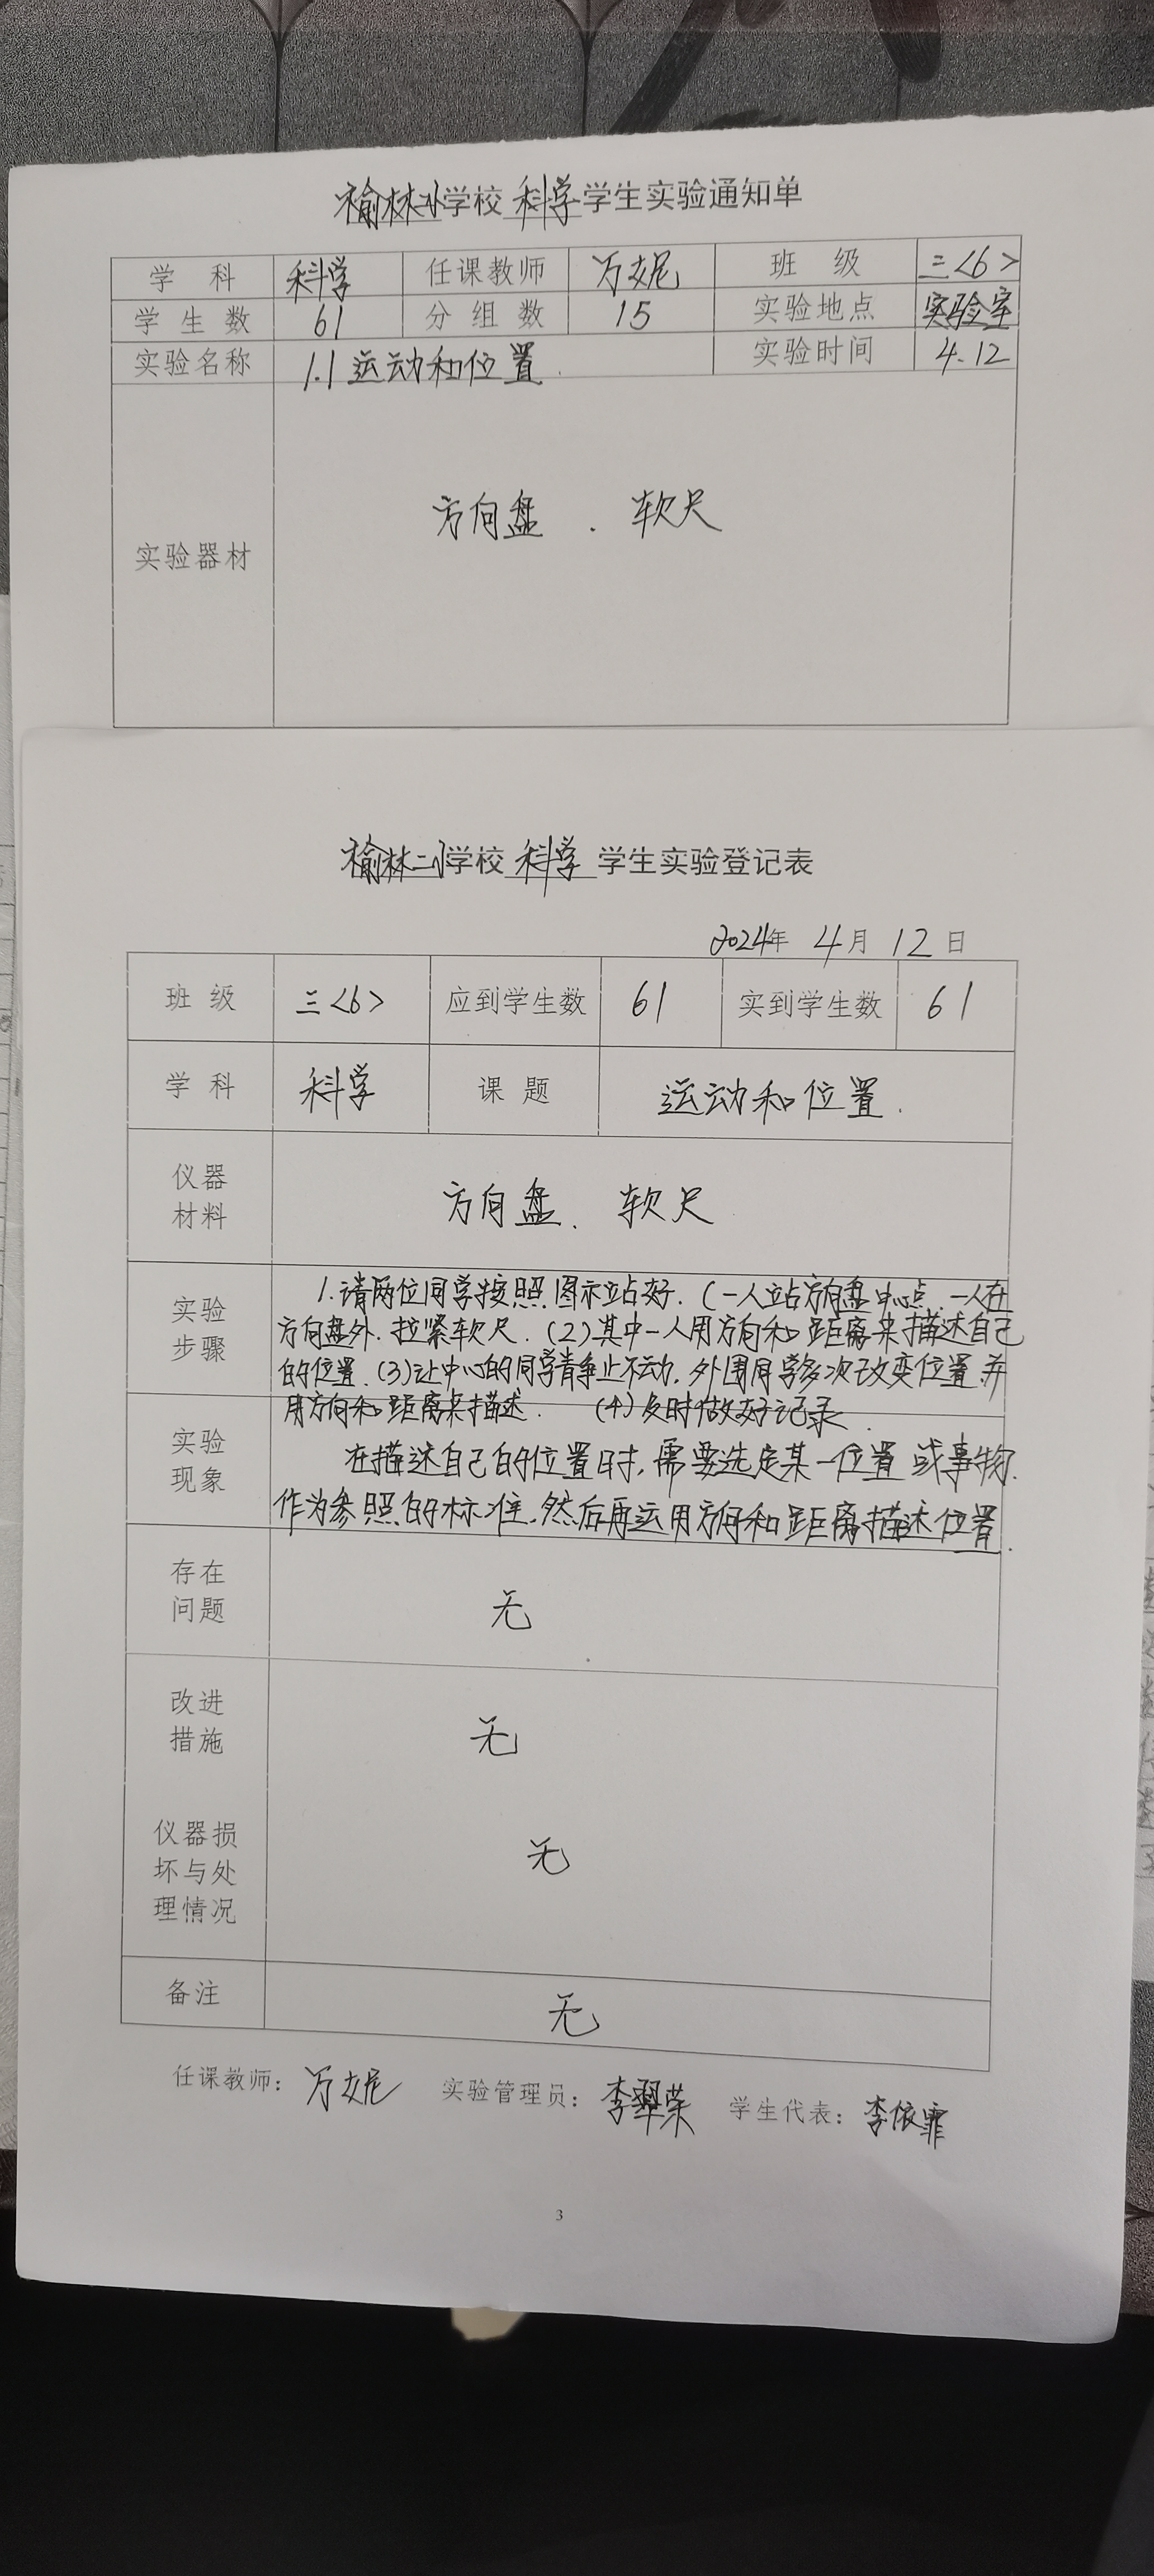 榆林小学校 科学 学生实验通知单
学 科 科学 任课教师 万妮 班 级 三<6>
学 生 数 61 分 组 数 15 实验地点 实验室
实验名称 1.1 运动和位置 实验时间 4.12
实验器材 方向盘 . 软尺
榆林二小学校 科学 学生实验登记表
2024年 4月 12日
班 级 三<6> 应到学生数 61 实到学生数 61
学 科 科学 课 题 运动和位置.
仪器
材料
方向盘. 软尺
实验
步骤
1.请两位同学按照图示站好.(一人站方向盘中心点.一人在
方向盘外.拉紧软尺.(2)其中一人用方向和距离来描述自己
的位置.(3)让中心的同学静止不动.外围同学多次改变位置.并
用方向和距离来描述. (4)及时做好记录.
实验
现象
在描述自己的位置时,需要选定某一位置或事物.
作为参照的标准.然后再运用方向和距离描述位置.
存在
问题
无
改进
措施
无
仪器损
坏与处
理情况
无
备注 无
任课教师: 万妮 实验管理员: 李翠荣 学生代表: 李依霏
3